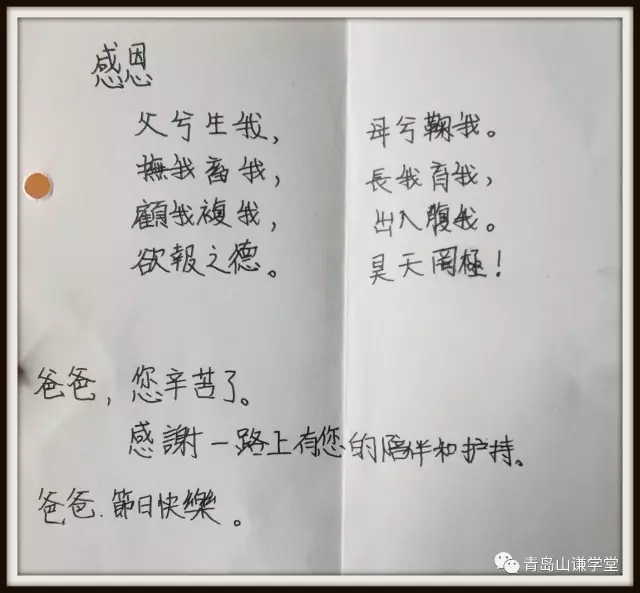 感恩
父兮生我， 母兮鞠我。
撫我畜我， 長我育我，
顧我複我， 出入腹我。
欲報之德。 昊天罔極！
爸爸，您辛苦了。
感謝一路上有您的陪伴和护持。
爸爸.節日快樂。
青岛山谦学堂